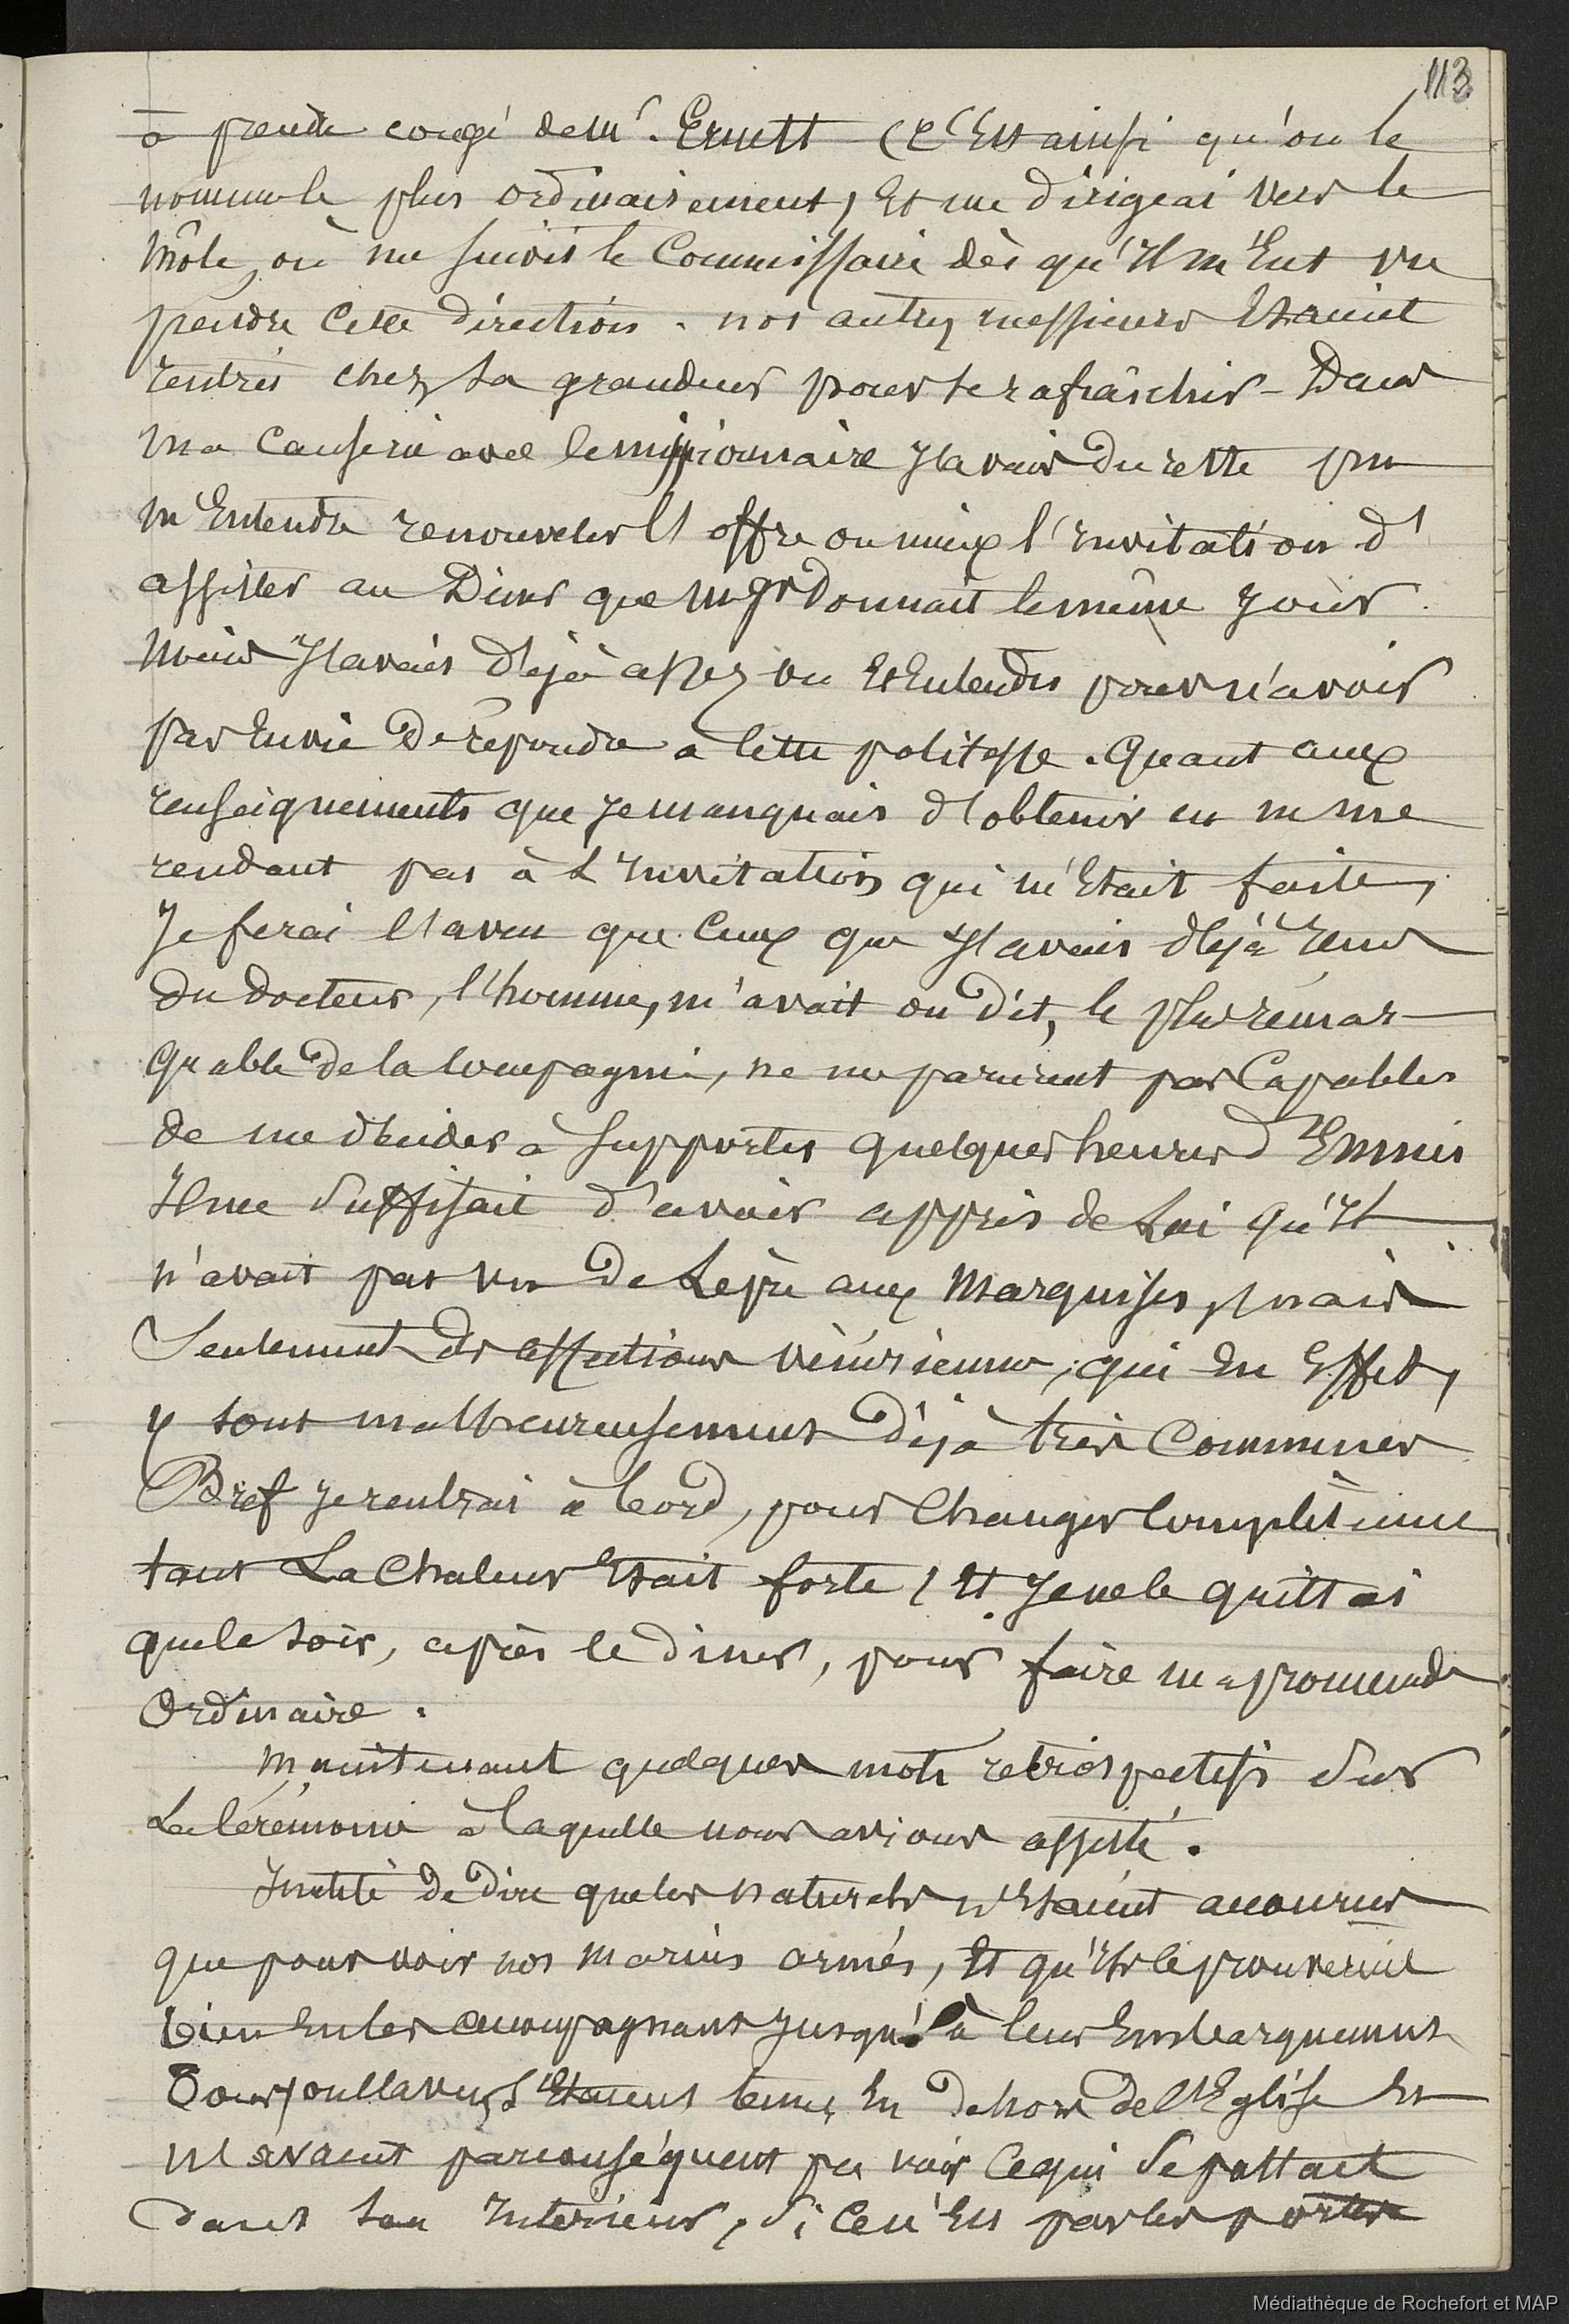 113
à prendre congé de Mr. Ernett (c'est ainsi qu'on le
nomme le plus ordinairement, et me dirigeai vers le
Môle, où me suivit le Commissaire dès qu'il m'eut vu
prendre cette direction. nos autres messieurs étaient
rentrés chez sa grandeur pour se rafraîchir - Dans
ma causerie avec le missionnaire j'avais du reste pu
m'entendre renouveler l'offre ou mieux l'invitation d'
assister au Diner que Mgr donnait le même jour.
Mais j'avais déjà assez vu et entendu pour n'avoir
pas envie de répondre à cette politesse. Quant aux
renseignements que je manquais d'obtenir en ne me
rendant pas à l'invitation qui m'était faite,
Je ferai l'aveu que ceux que j'avais déjà reçus
du docteur, l'homme, m'avait on dit, le plus remar-
quable de la compagnie, ne me parurent pas capables
de me décider à supporter quelques heures d'Ennuis
Il me suffisait d'avoir appris de lui qu'il
n'avait pas vu de Lèpre aux Marquises, mais
Seulement des affections vénériennes, qui en effet,
y sont malheureusement déjà très communes
Bref je rentrai à bord, pour changer complètement
tant La chaleur était forte, et je ne le quittai
que le soir, après le diner, pour faire ma promenade
Ordinaire.
Maintenant quelques mots rétrospectifs sur
La Cérémonie à laquelle nous avions assisté.
Inutile de dire que les naturels n'étaient accourus
que pour voir nos marins armés, et qu'ils le prouvèrent
bien en les accompagnant jusqu'à leur embarquement
Tous s'étaient tenus en dehors de l'Eglise et
n'avaient par conséquent pu voir ce qui se passait
dans son Intérieur, si ce n'est par les portes
Médiathèque de Rochefort et MAP